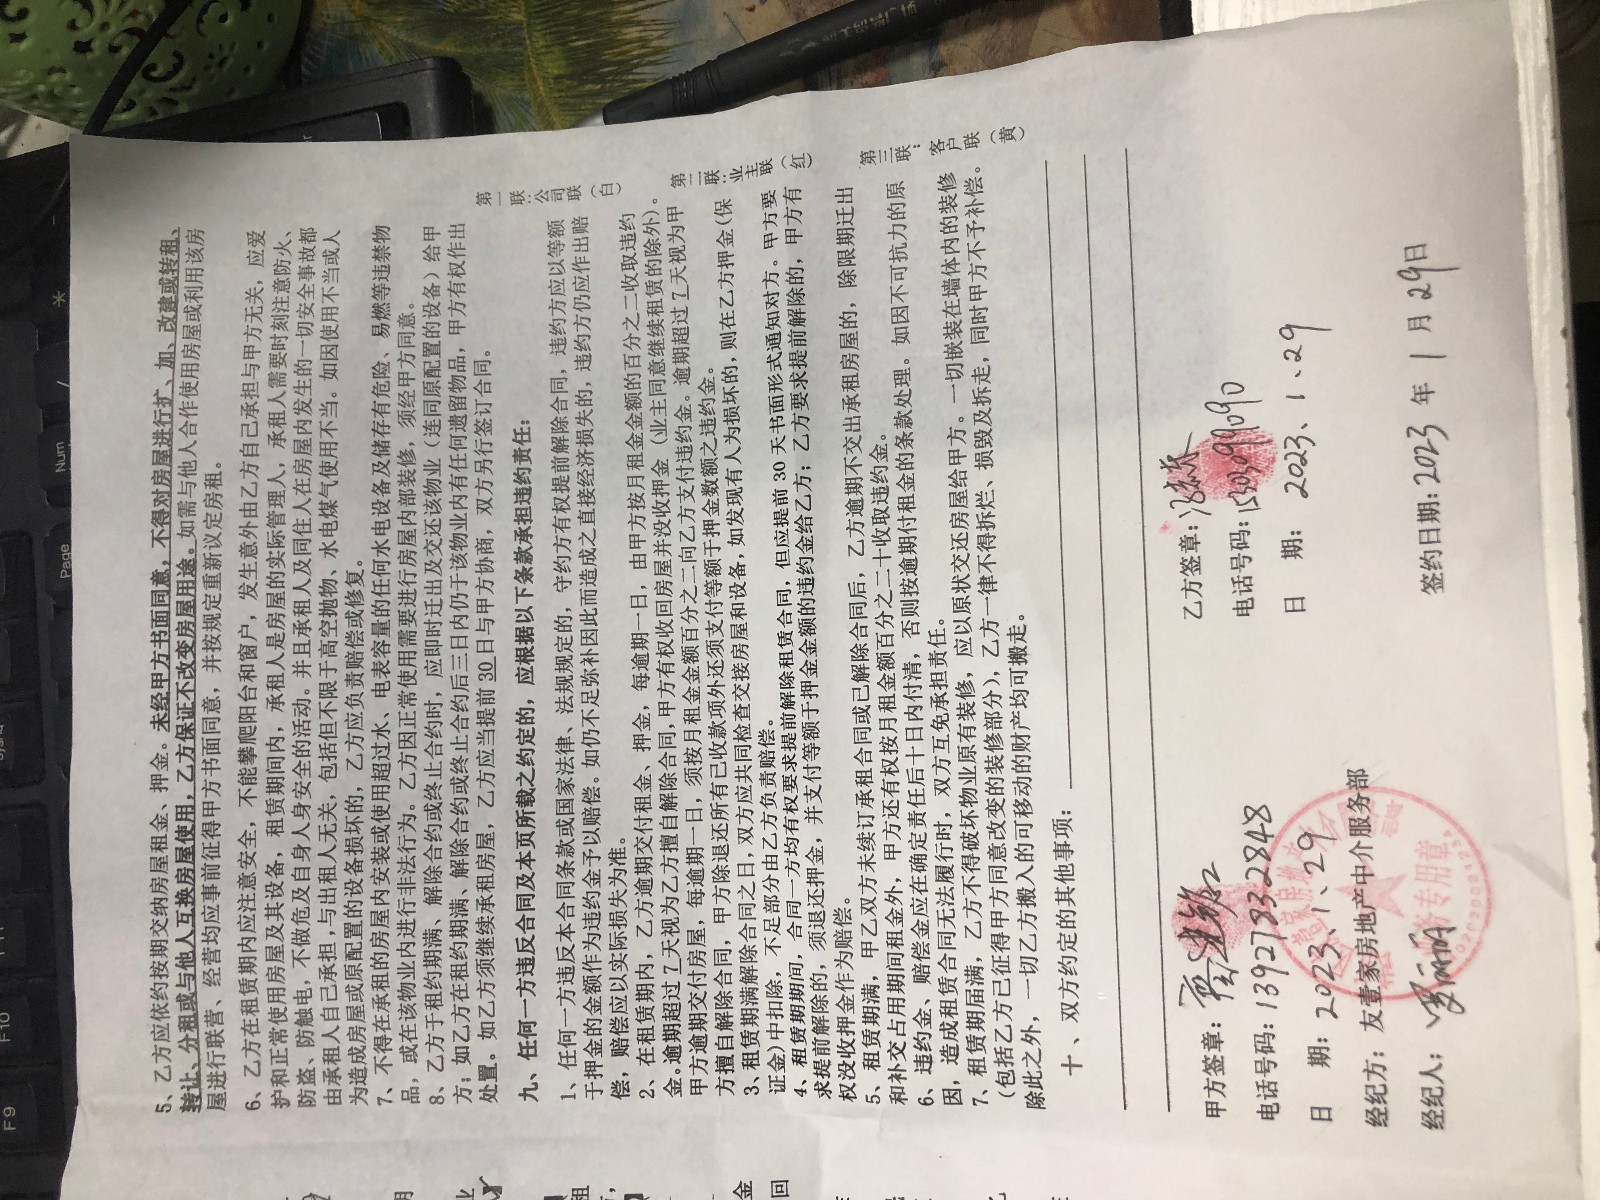 5、乙方应依约按期交纳房屋租金、押金。未经甲方书面同意，不得对房屋进行扩、加、改建或转租、
转让、分租或与他人互换房屋使用，乙方保证不改变房屋用途。如需与他人合作使用房屋或利用该房
屋进行联营、经营均应事前征得甲方书面同意，并按规定重新议定房租。
6、乙方在租赁期内应注意安全，不能攀爬阳台和窗户，发生意外由乙方自己承担与甲方无关，应爱
护和正常使用房屋及其设备，租赁期间内，承租人是房屋的实际管理人，承租人需要时刻注意防火、
防盗、防触电，不做危及自身人身安全的活动。并且承租人及同住人在房屋内发生的一切安全事故都
由承租人自己承担，与出租人无关，包括但不限于高空抛物、水电煤气使用不当。如因使用不当或人
为造成房屋或原配置的设备损坏的，乙方应负责赔偿或修复。
7、不得在承租的房屋内安装或使用超过水、电表容量的任何水电设备及储存有危险、易燃等违禁物
品，或在该物业内进行非法行为。乙方因正常使用需要进行房屋内部装修，须经甲方同意。
8、乙方于租约期满、解除合约或终止合约时，应即时迁出及交还该物业（连同原配置的设备）给甲
方；如乙方在租约期满、解除合约或终止合约后三日内仍于该物业内有任何遗留物品，甲方有权作出
处置。如乙方须继续承租房屋，乙方应当提前 30 日与甲方协商，双方另行签订合同。
九、任何一方违反合同及本页所载之约定的，应根据以下条款承担违约责任：
1、任何一方违反本合同条款或国家法律、法规规定的，守约方有权提前解除合同，违约方应以等额
于押金的金额作为违约金予以赔偿。如仍不足弥补因此而造成之直接经济损失的，违约方仍应作出赔
偿，赔偿应以实际损失为准。
2、在租赁期内，乙方逾期交付租金、押金，每逾期一日，由甲方按月租金金额的百分之二收取违约
金。逾期超过 7 天视为乙方擅自解除合同，甲方有权收回房屋并没收押金（业主同意继续租赁的除外）。
甲方逾期交付房屋，每逾期一日，须按月租金金额百分之二向乙方支付违约金。逾期超过 7 天视为甲
方擅自解除合同，甲方除退还所有已收款项外还须支付等额于押金数额之违约金。
3、租赁期满解除合同之日，双方应共同检查交接房屋和设备，如发现有人为损坏的，则在乙方押金（保
证金）中扣除，不足部分由乙方负责赔偿。
4、租赁期期间，合同一方均有权要求提前解除租赁合同，但应提前 30 天书面形式通知对方。甲方要
求提前解除的，须退还押金，并支付等额于押金金额的违约金给乙方；乙方要求提前解除的，甲方有
权没收押金作为赔偿。
5、租赁期满，甲乙双方未续订承租合同或已解除合同后，乙方逾期不交出承租房屋的，除限期迁出
和补交占用期间租金外，甲方还有权按月租金额百分之二十收取违约金。
6、违约金、赔偿金应在确定责任后十日内付清，否则按逾期付租金的条款处理。如因不可抗力的原
因，造成租赁合同无法履行时，双方互免承担责任。
7、租赁期届满，乙方不得破坏物业原有装修，应以原状交还房屋给甲方。一切嵌装在墙体内的装修
（包括乙方已征得甲方同意改变的装修部分），乙方一律不得拆烂、损毁及拆走，同时甲方不予补偿。
除此之外，一切乙方搬入的可移动的财产均可搬走。
十、双方约定的其他事项：
第一联：公司联（白）
第二联：业主联（红）
第三联：客户联（黄）
甲方签章：
电话号码：13927332848
日 期：2023.1.29
经纪方：友壹家房地产中介服务部
经纪人：
乙方签章：
电话号码：15309099090
日 期：2023.1.29
签约日期：2023 年 1 月 29日
业务专用章
F9
F10
Page
Num
/
*